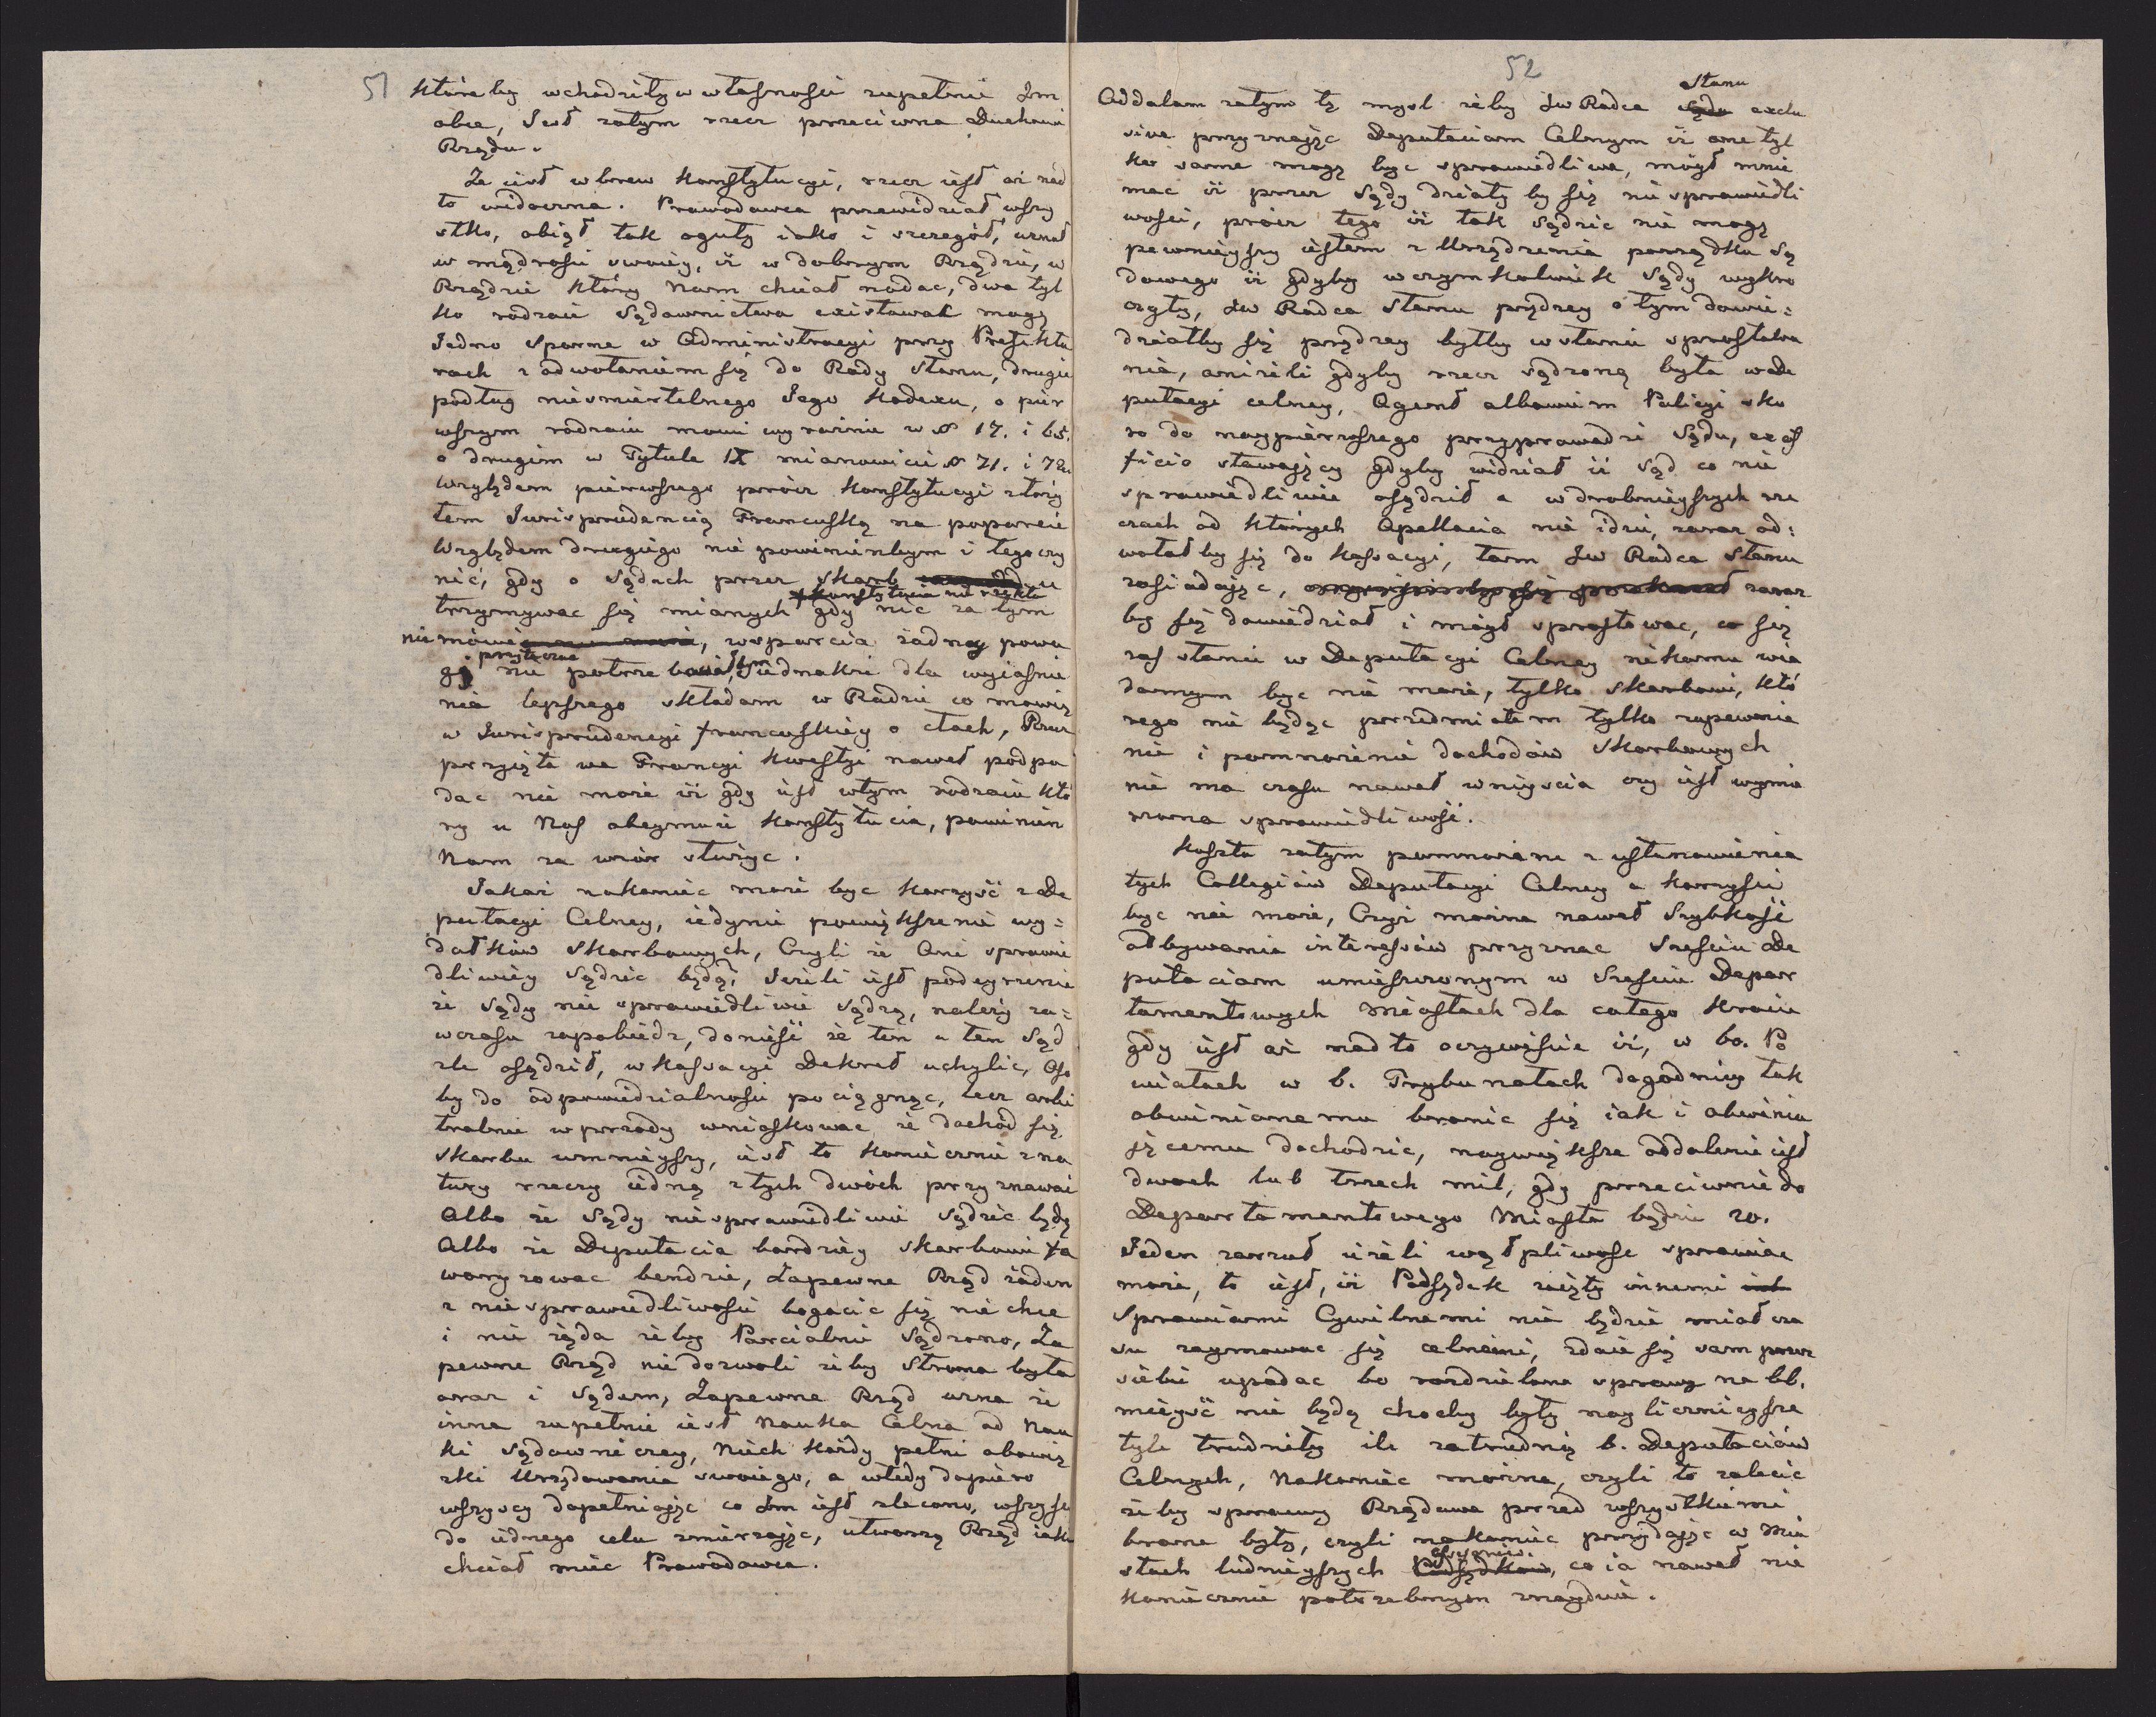 51
któreby wchodziły w własnosci zupełnie Im
obce, Jest zatym rzecz przeciwna Duchowi
Rządu.
Ze iest wbrew Konstytucyi, rzecz iest aż nad
to widoczna. Prawodawca przewidział wszy
stko, obiął tak oguły iako i szczegół, uznał
w mądrosci swoiey, iż w dobrym Rządzie, w
Rządzie który Nam chciał nadac, dwa tyl
ko rodzaie Sądownictwa existowak mogą
Jedno sporne w Administracyi przy Prefektu
rach z odwołaniem się do Rady Stanu, drugie
podług niesmiertelnego Jego Kodexu, o pier
wszym rodzaiu mowi wyraźnie w § 17. i 65.
o drugim w Tytule IX mianowicie § 71. i 72.
Względem pierwszego prócz Konstytucyi złoży
łem Jurisprudencią Francuską na poparcie
Względem drugiego nie powinienbym i tego czy
nić, gdy o Sądach przez Skarb u
Konstytucia nie rzekła
trzymywac się mianych gdy nic za tym
nie mówi, wsparcia żadney powa
przytoczac
gi nie potrzebowałbym, Jednakże dla wyiaśnie
nia lepszego składam w Radzie co mowią
w Jurisprudencyi francuskiey o cłach, Rzecz
przyięta we Francyi Kwestyi nawet podpa
dac nie może iż gdy iest w tym rodzaiu któ
ry u Nas obeymuie Konstytucia, powinien
Nam za wzór służyc.
Jakaż nakoniec może byc korzyść z De
putacyi Celney, iedynie powiększenie wy=
datków Skarbowych, Czyli że Oni sprawie
dliwiey Sądzic będą, Jeżeli iest podeyrzenie
że Sądy nie sprawiedliwie Sądzą, należy za=
wczasu zapobiedz, donieść że ten a ten Sąd
źle osądził, w Kassacyi Dekret uchylic, Oso
by do odpowiedzialnosci pociągnąc, lecz arbi
tralnie wprzody wnioskowac że dochod się
Skarbu umnieyszy, iest to koniecznie z na
tury rzeczy iedną z tych dwóch przyznawai
Albo że Sądy niesprawiedliwie Sądzic będą
Albo że Deputacia bardziey Skarbowi fa
woryzowac bendzie, Zapewne Rząd żaden
z niesprawiedliwosci bogacic się nie chce
i nie żąda żeby Parcialnie Sądzono, Za
pewne Rząd nie dozwoli żeby Strona była
oraz i Sądem, Zapewne Rząd uzna że
inna zupełnie iest Nauka Celna od Nau
ki Sądowniczey, Niech każdy pełni obowią
zki Urzędowania swoiego, a wtedy dopiero
wszyscy dopełniaiąc co Im iest zlecono, wszyscy
do iednego celu zmierzaiąc, utworzą Rząd iaki
chciał miec Prawodawca.
52
Stanu
Oddalam zatym tę mysl żeby Jw Radca Sądu exclu
sive przyznaiąc Deputaciom Celnym iż one tyl
ko same mogą byc sprawiedliwe, mógł mnie
mac iż przez Sądy działy by się niesprawiedli
wosci, procz tego iż tak Sądzic nie mogą
pewnieyszy iestem z Urządzenia porządku Są
dowego iż gdyby w czymkolwiek Sądy wykro
czyły, Jw Radca Stanu prędzey o tym dowie=
działby się prędzey byłby w stanie sprostowa
nia, aniżeli gdyby rzecz sądzoną była w De
putacyi celney, Agent albowiem Policyi sko
ro do naypierwszego przyprowadzi Sądu, ex of
ficio stawaiący gdyby widział iż Sąd co nie
sprawiedliwie osądził a w drobnieyszych rze
czach od których Apellacia nie idzie, zaraz od=
wołał by się do Kassacyi, tam Jw Radca Stanu
zasiadaiąc, zaraz
by się dowiedział i mógł sprostowac, co się
zas stanie w Deputacyi Celney nikomu wia
domym byc nie może, tylko Skarbowi, któ
rego nie będąc przedmiotem tylko zapewnie
nie i pomnożenie dochodów Skarbowych
nie ma czasu nawet wniyscia czy iest wymie
rzona sprawiedliwość.
Koszta zatym pomnożone z ustanowienia
tych Collegiów Deputacyi Celney a korzysci
byc nie może, Czyż można nawet Szybkość
odbywania interessów przyznac Szesciu De
putaciom umieszczonym w Szesciu Depar
tamentowych Miastach dla całego Kraiu
gdy iest aż nadto oczywiscie iż, w 60. Po
wiatach w 6. Trybunałach dogodniey tak
obwinionemu bronic się iak i obwinia
iącemu dochodzic, naywiększe oddalenie iest
dwoch lub trzech mil, gdy przeciwnie do
Departamentowego Miasta będzie 20.
Jeden zarzut ieżeli wątpliwosc sprawiac
może, to iest, iż Podsędek zaięty innemi
Sprawami Cywilnemi nie będzie miał cza
su zaymowac się celnemi, zdaie się sam przez
siebie upadac bo rozdzielone sprawy na 66.
mieysć nie będą chocby były nayliczniejsze
tyle trudniły ile zatrudnią 6. Deputaciów
Celnych, Nakoniec można, czyli to zalecic
żeby sprawy Rządowe przed wszystkiemi
brane były, czyli nakoniec przydaiąc w Mia
stach ludnieyszych Podsędków, co ia nawet nie
koniecznie potrzebnym znayduie.